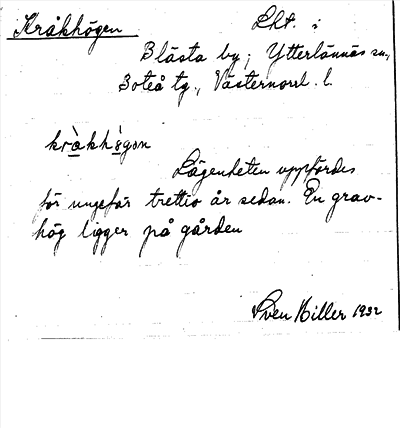 Kråkhögen Lht. i
Blästa by, Ytterlännäs sn.,
Boteå tg., Västernorrl. l.
kråkhögən
Lägenheten uppfördes
för ungefär trettio år sedan. En grav-
hög ligger på gården
Sven Hiller 1932